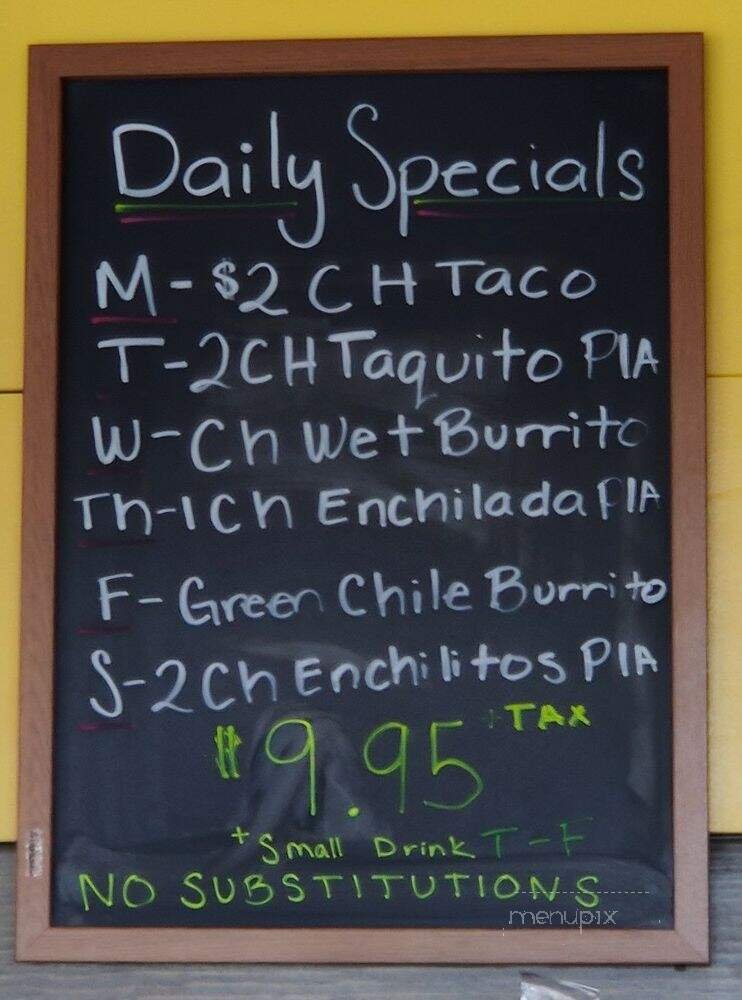 Daily Specials
M-$2 CH Taco
T-2CH Taquito PIA
W-Ch Wet Burrito
Th-1Ch Enchilada PIA
F-Green Chile Burrito
S-2Ch Enchilitos PIA
$9.95 +TAX
+ Small Drink T-F
NO SUBSTITUTIONS
menupix